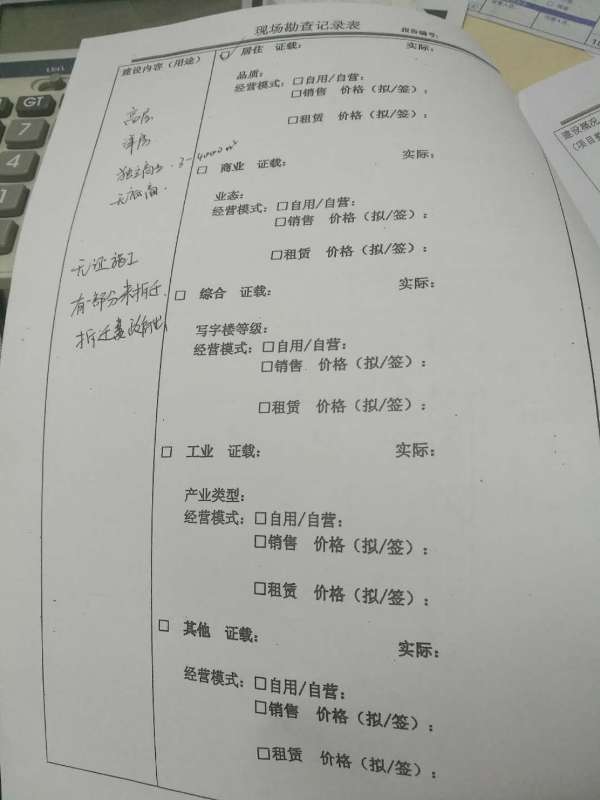 现场勘查记录表
报告编号：
建设内容（用途）
□ 居住 证载： 实际：
品质：
经营模式：□自用/自营：
□销售 价格（拟/签）：
□租赁 价格（拟/签）：
高层
洋房
独立商业．3-4000㎡
无底商．
□ 商业 证载： 实际：
业态：
经营模式：□自用/自营：
□销售 价格（拟/签）：
□租赁 价格（拟/签）：
无证施工
有一部分未拆迁．
拆迁
□ 综合 证载： 实际：
写字楼等级：
经营模式：□自用/自营：
□销售 价格（拟/签）：
□租赁 价格（拟/签）：
□ 工业 证载： 实际：
产业类型：
经营模式：□自用/自营：
□销售 价格（拟/签）：
□租赁 价格（拟/签）：
□ 其他 证载： 实际：
经营模式：□自用/自营：
□销售 价格（拟/签）：
□租赁 价格（拟/签）：
GT
7
4
1
建设概况
（项目